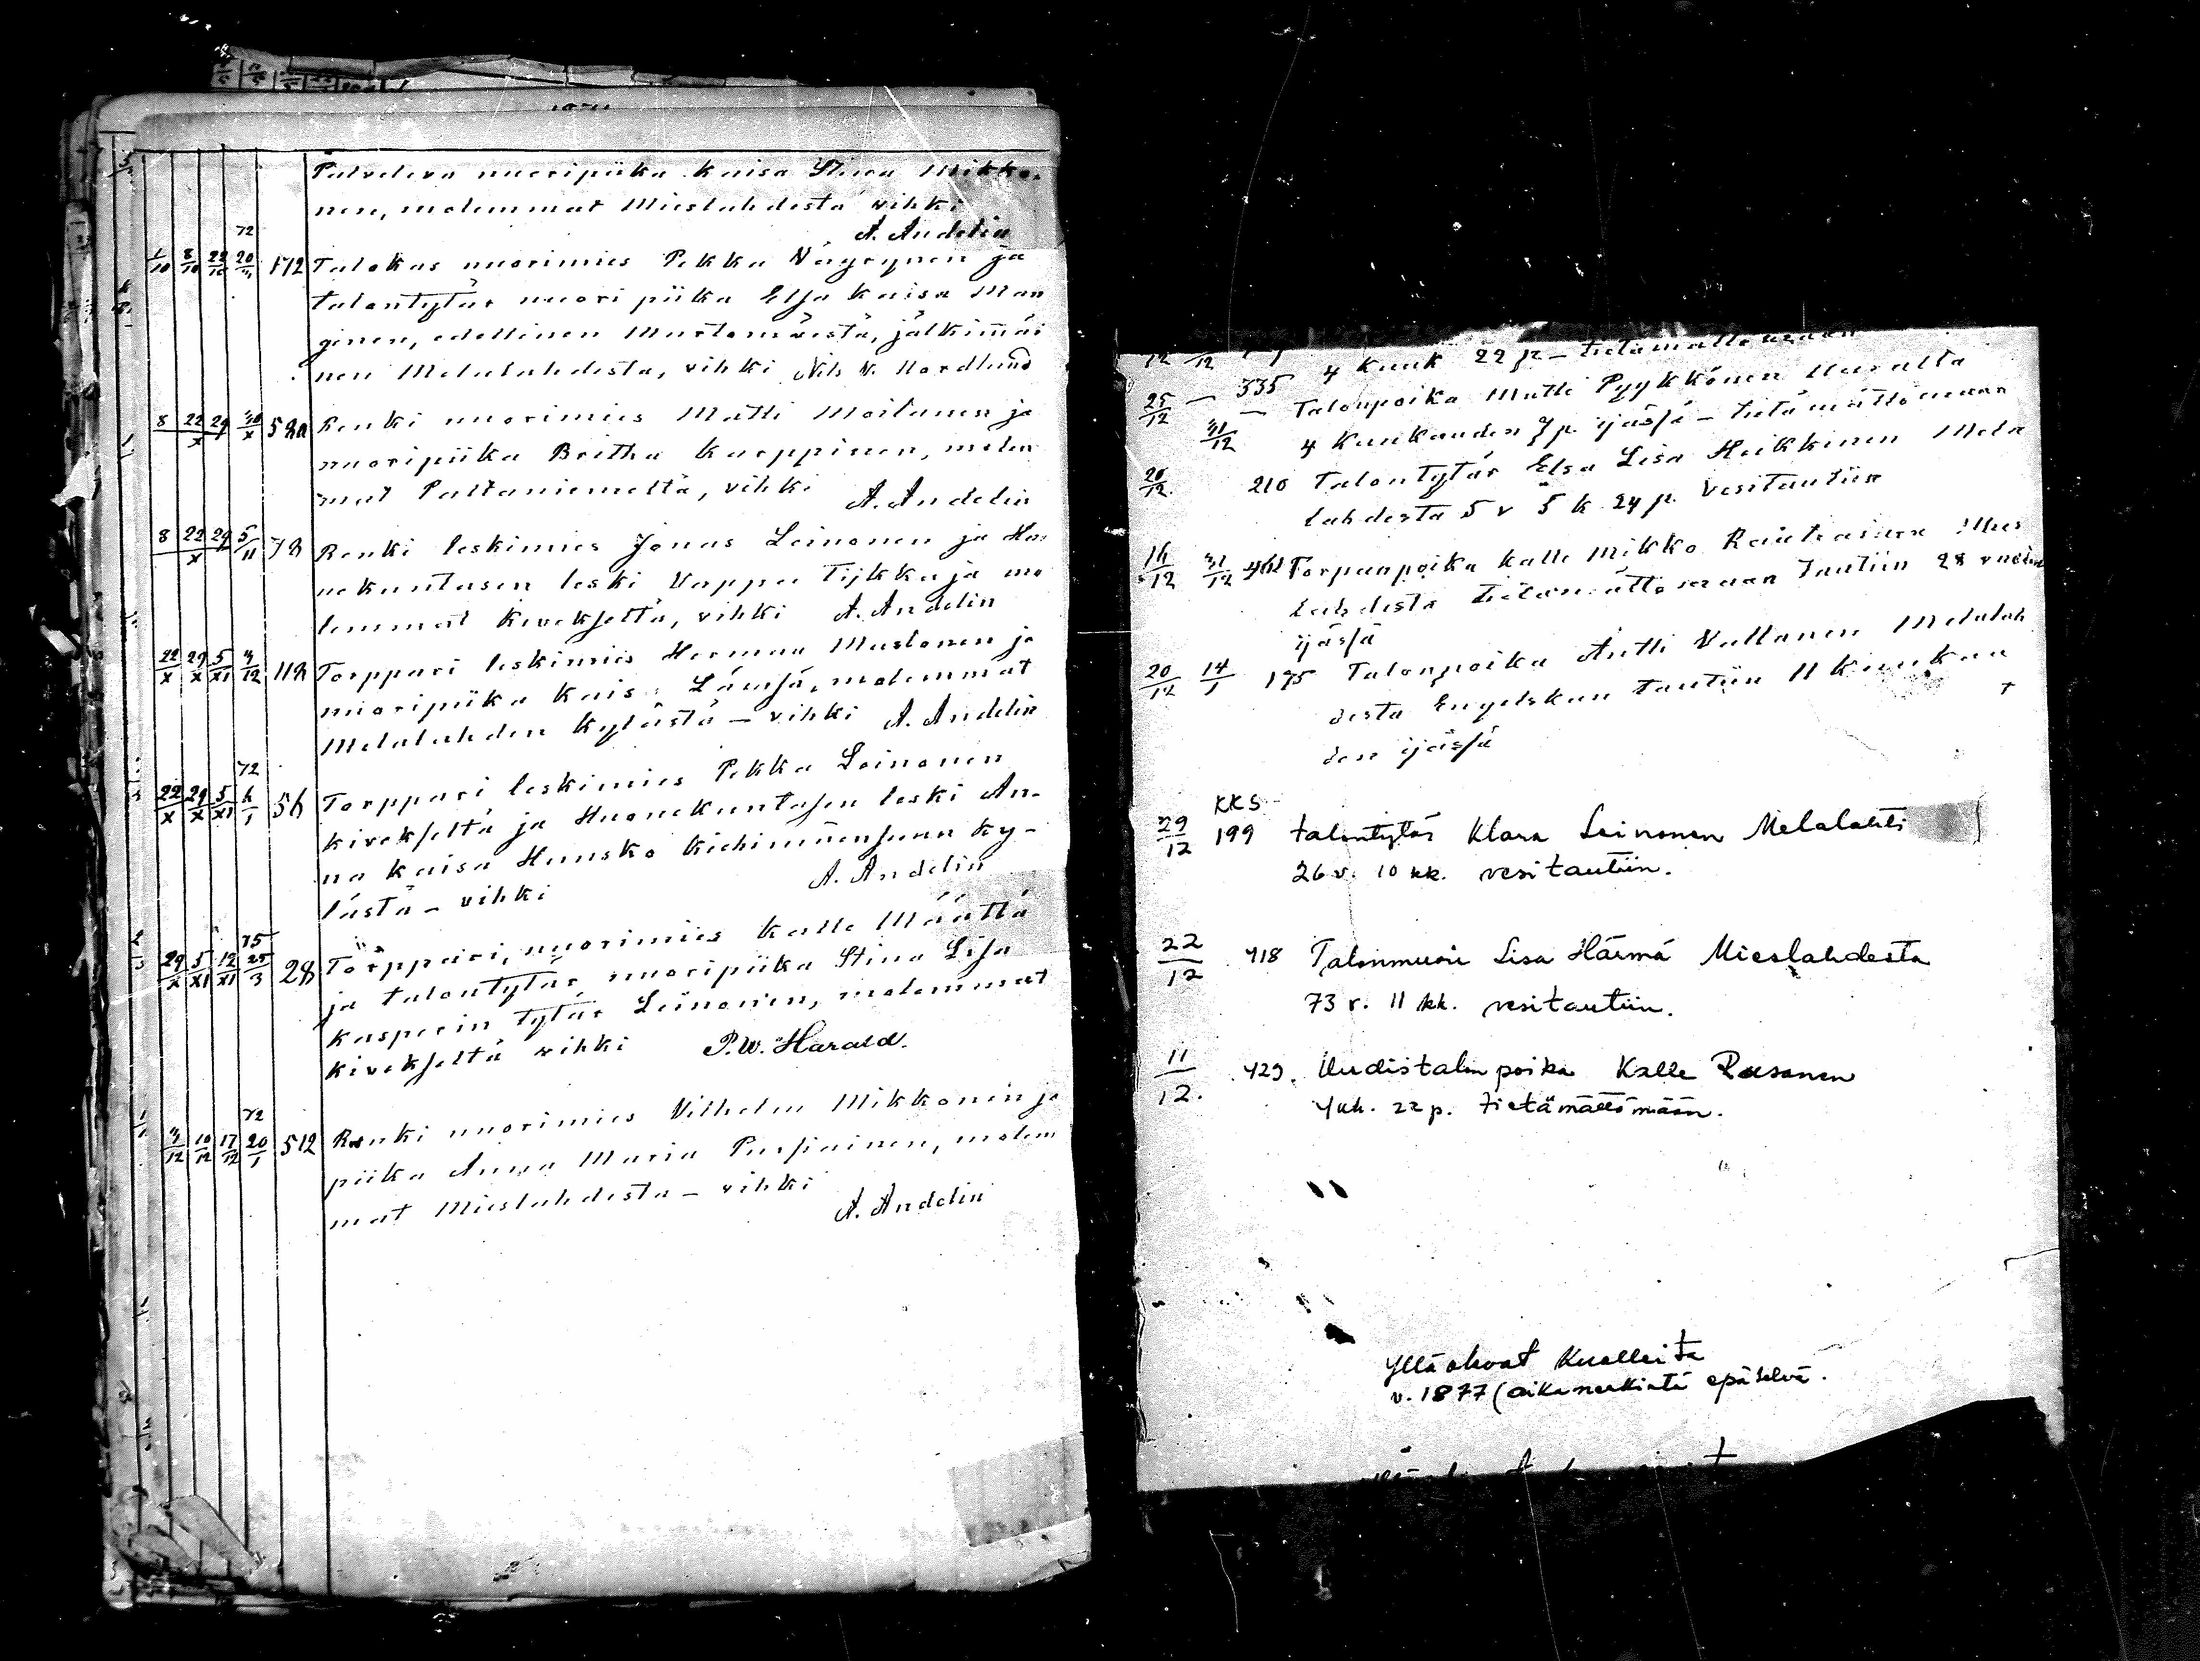 Palveleva nuoripiika Kaisa Stina Mikko-
nen, molemmat Mieslahdesta vihki
A. Andelin
72
1/10 8/10 22/10 20/ 172 Talokas nuorimies Pekka Väyrynen ja
talontytär nuori piika Elsa Kaisa Man
ginen, edellinen Mustamäestä, jälkimäi
nen Melalahdesta, vihki Nils W. Nordlund
8 22/X 29 30/X 58a Renki nuorimies Matti Moilanen ja
nuoripiika Britha Karppinen, molem
mat Paltaniemeltä, vihki A. Andelin
8 22/X 29 5/11 78 Renki leskimies Jonas Leinonen ja Huo
nekuntasen leski Vappu Tijkkaja mo
lemmat Kivekseltä, vihki A. Andelin
22/X 29/X 5/XI 4/12 118 Torppari leskimies Herman Mustonen ja
nuoripiika Kaisa Lämsä, molemmat
Melalahden Kylästä – vihki A. Andelin
72
22/X 29/X 5/XI 6/1 56 Torppari leskimies Pekka Leinonen
Kivekseltä ja Huonekuntasen leski An-
na Kaisa Hunsko Kiehimäensuun Ky-
lästä – vihki A. Andelin
75
29/X 5/XI 12/XI 25/3 28 Törppäri, nuorimies Kalle Määttä
ja talontytär nuoripiika Stina Lisa
Kasperin tytär Leinonen, molemmat
Kivekseltä vihki P.W. Harald.
72
3/12 10/12 17/12 20/1 512 Renki nuorimies Vilhelm Mikkonen ja
piika Anna Maria Pursiainen, molem
mat Mieslahdesta – vihki
A. Andelin
4 Kuuk 22 p – tietämättömään
25/12 – 335 Talonpoika Matti Pyykkönen Uuralta
31/12 – 4 Kuukauden 7 p. ijässä – tietämättömään
20/12. 210 Talontytär Elsa Lisa Heikkinen Mela
lahdesta 5 v 5 k 24 p. Vesitautiin
16/12 31/12 461 Torpanpoika Kalle Mikko Rautiainen Mies
lahdesta tietämättömään tautiin 28 vuoden
ijässä
20/12 14/1 195 Talonpoika Antti Valtanen Melalah
desta Engelskan tautiin 11 Kuukau
den ijässä
KKS
29/12 199 talontytär Klara Leinonen Melalahti
26 v. 10 kk. vesitautiin.
22/12 418 Talonmuori Lisa Härmä Mieslahdesta
73 v. 11 kk. vesitautiin.
11/12. 429. Uudistalon poika Kalle Pusonen
4 kk. 22 p. tietämättömään.
Yllä olevat Kuolleita
v. 1877 (aikamerkintä epäselvä.